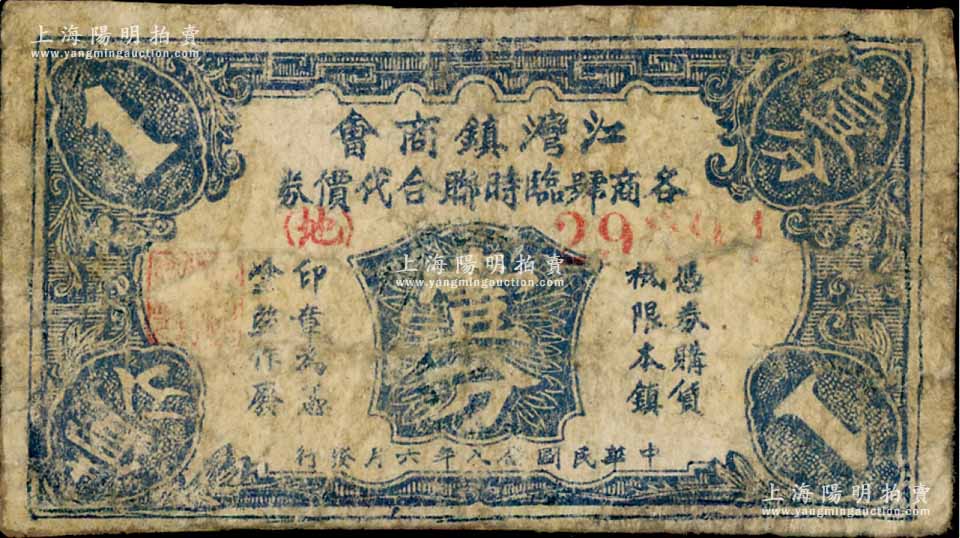 上海陽明拍賣
www.yangmingauction.com
1
壹分
江灣鎮商會
各商肆臨時聯合代價券
(地)
憑券購貨
祇限本鎮
上海陽明拍賣
www.yangmingauction.com
壹分
印章為憑
塗改作廢
壹分
1
中華民國廿八年六月發行
上海陽明拍賣
www.yangmingauction.com